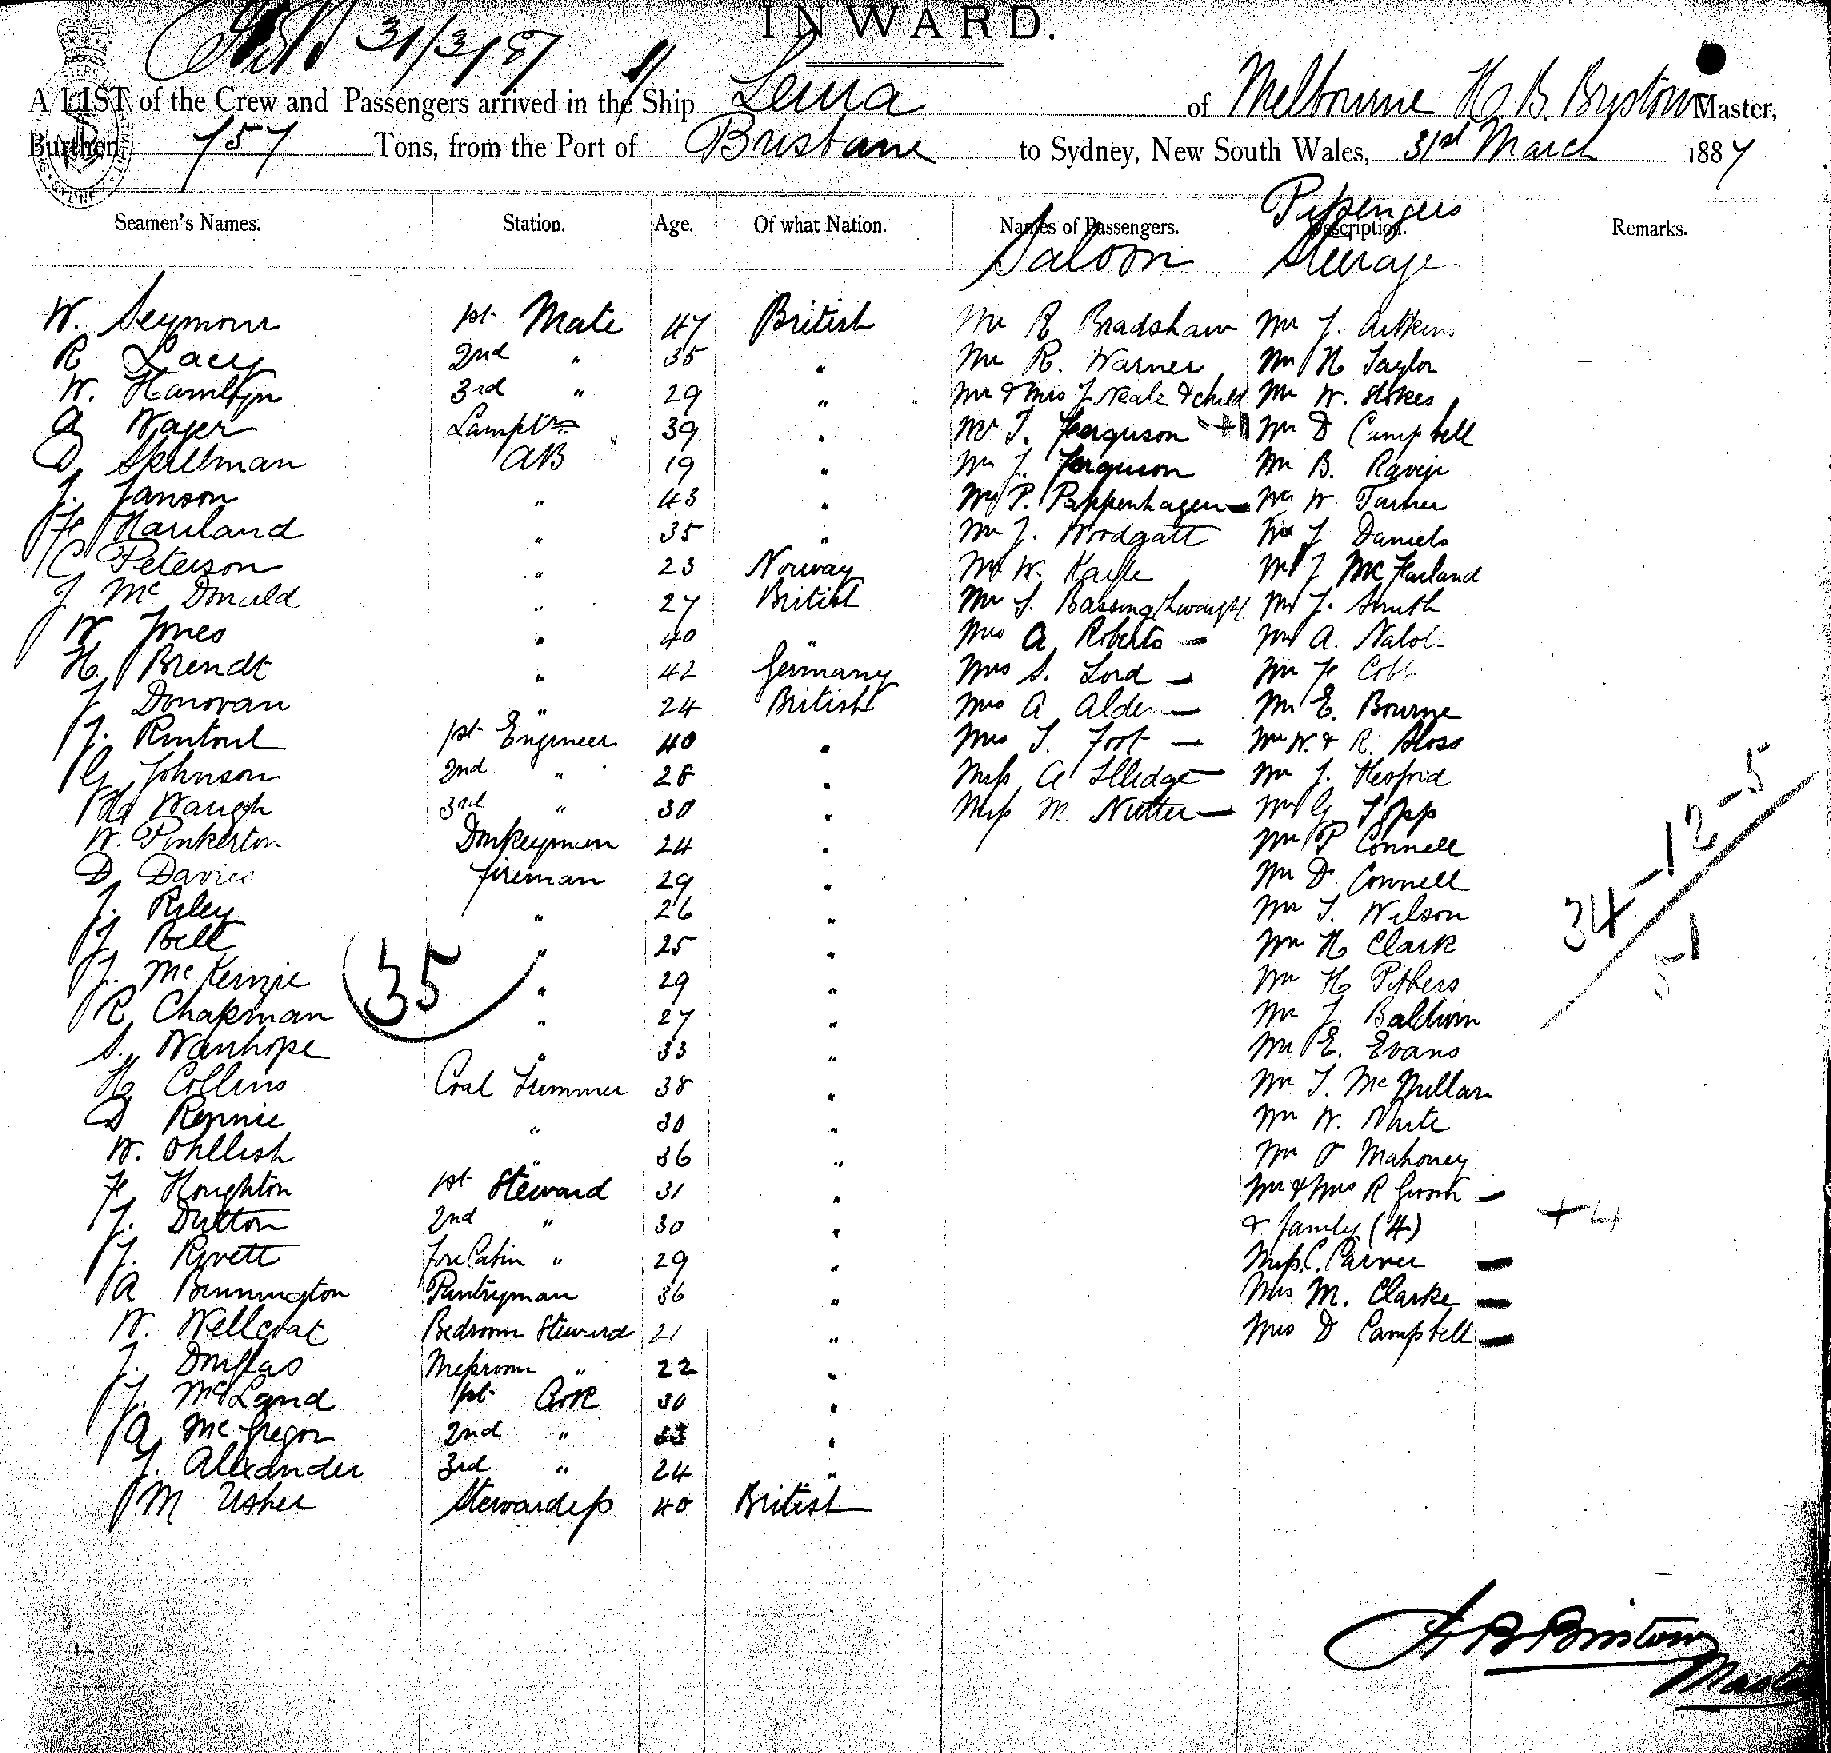 INWARD.
31/3/87
A LIST of the Crew and Passengers arrived in the Ship Leura of Melbourne H. B. Bristow Master,
Burthen 757 Tons, from the Port of Brisbane to Sydney, New South Wales, 31st March 1887
Seamen's Names. Station. Age. Of what Nation. Names of Passengers. Description. Remarks.
Saloon Passengers Steerage
W. Seymour 1st Mate 47 British Mr R Bradshaw Mr J. Aitkens
R Lacy 2nd " 35 " Mr R. Warner Mr H Taylor
W. Hamilton 3rd " 29 " Mr & Mrs J Neale & child Mr W. Stokes
A Wager Lamptr 39 " Mr T. Ferguson +1 Mr D Campbell
D. Skillman AB 19 " Mr J. Ferguson Mr B.
J. Janson " 43 " P. Pappenhagen Mr W Turner
F Hariland " 35 " Mr J. Woodgatt Mr J Daniels
C Peterson " 23 Norway Mr W. Kayle Mr J McFarland
J McDonald " 27 British Mr S. Bassingthwaight Mr J. Smith
W Jones " 40 " Mrs A Roberts Mr A.
H Brendt " 42 Germany Mrs S. Lord Mr F Cobb
J Donovan " 24 British Mrs A Alden Mr E. Bourne
J. Rintoul 1st Engineer 40 " Mrs T. Foot Mr W. & R. Sloss
G Johnson 2nd " 28 " Miss A Illidge Mr J. Hesford
Waugh 3rd " 30 " Miss M. Nutter Mr G Topp
W. Pinkerton Donkeyman 24 " Mr P Connell
D. Davies fireman 29 " Mr D Connell
J. Riley " 26 " Mr T. Wilson
J Bell " 25 " Mr H Clark
J. McKenzie " 29 " Mr H Pithers
R Chapman " 27 " Mr J Baldwin
S. Wanhope " 33 " Mr E. Evans
H Collins Coal Trimmer 38 " Mr T. McMillan
D Rennie " 30 " Mr W. White
W. Ohllish " 36 " Mr O Mahoney
F. Houghton 1st Steward 31 " Mr & Mrs R
J. Dutton 2nd " 30 " & family (4) +4
J. Rivett Fore Cabin " 29 " Miss C. Carver
A Binnington Pantryman 36 " Mrs M. Clarke
W. Wellcoat Bedroom Steward 21 " Mrs D Campbell
J. Douglas Messroom " 22 "
J. McLand 1st Cook 30 "
A McGregor 2nd " 33 "
J. Alexander 3rd " 24 "
M Usher Stewardess 40 British
35
34-12-5
51
H B Bristow
Master